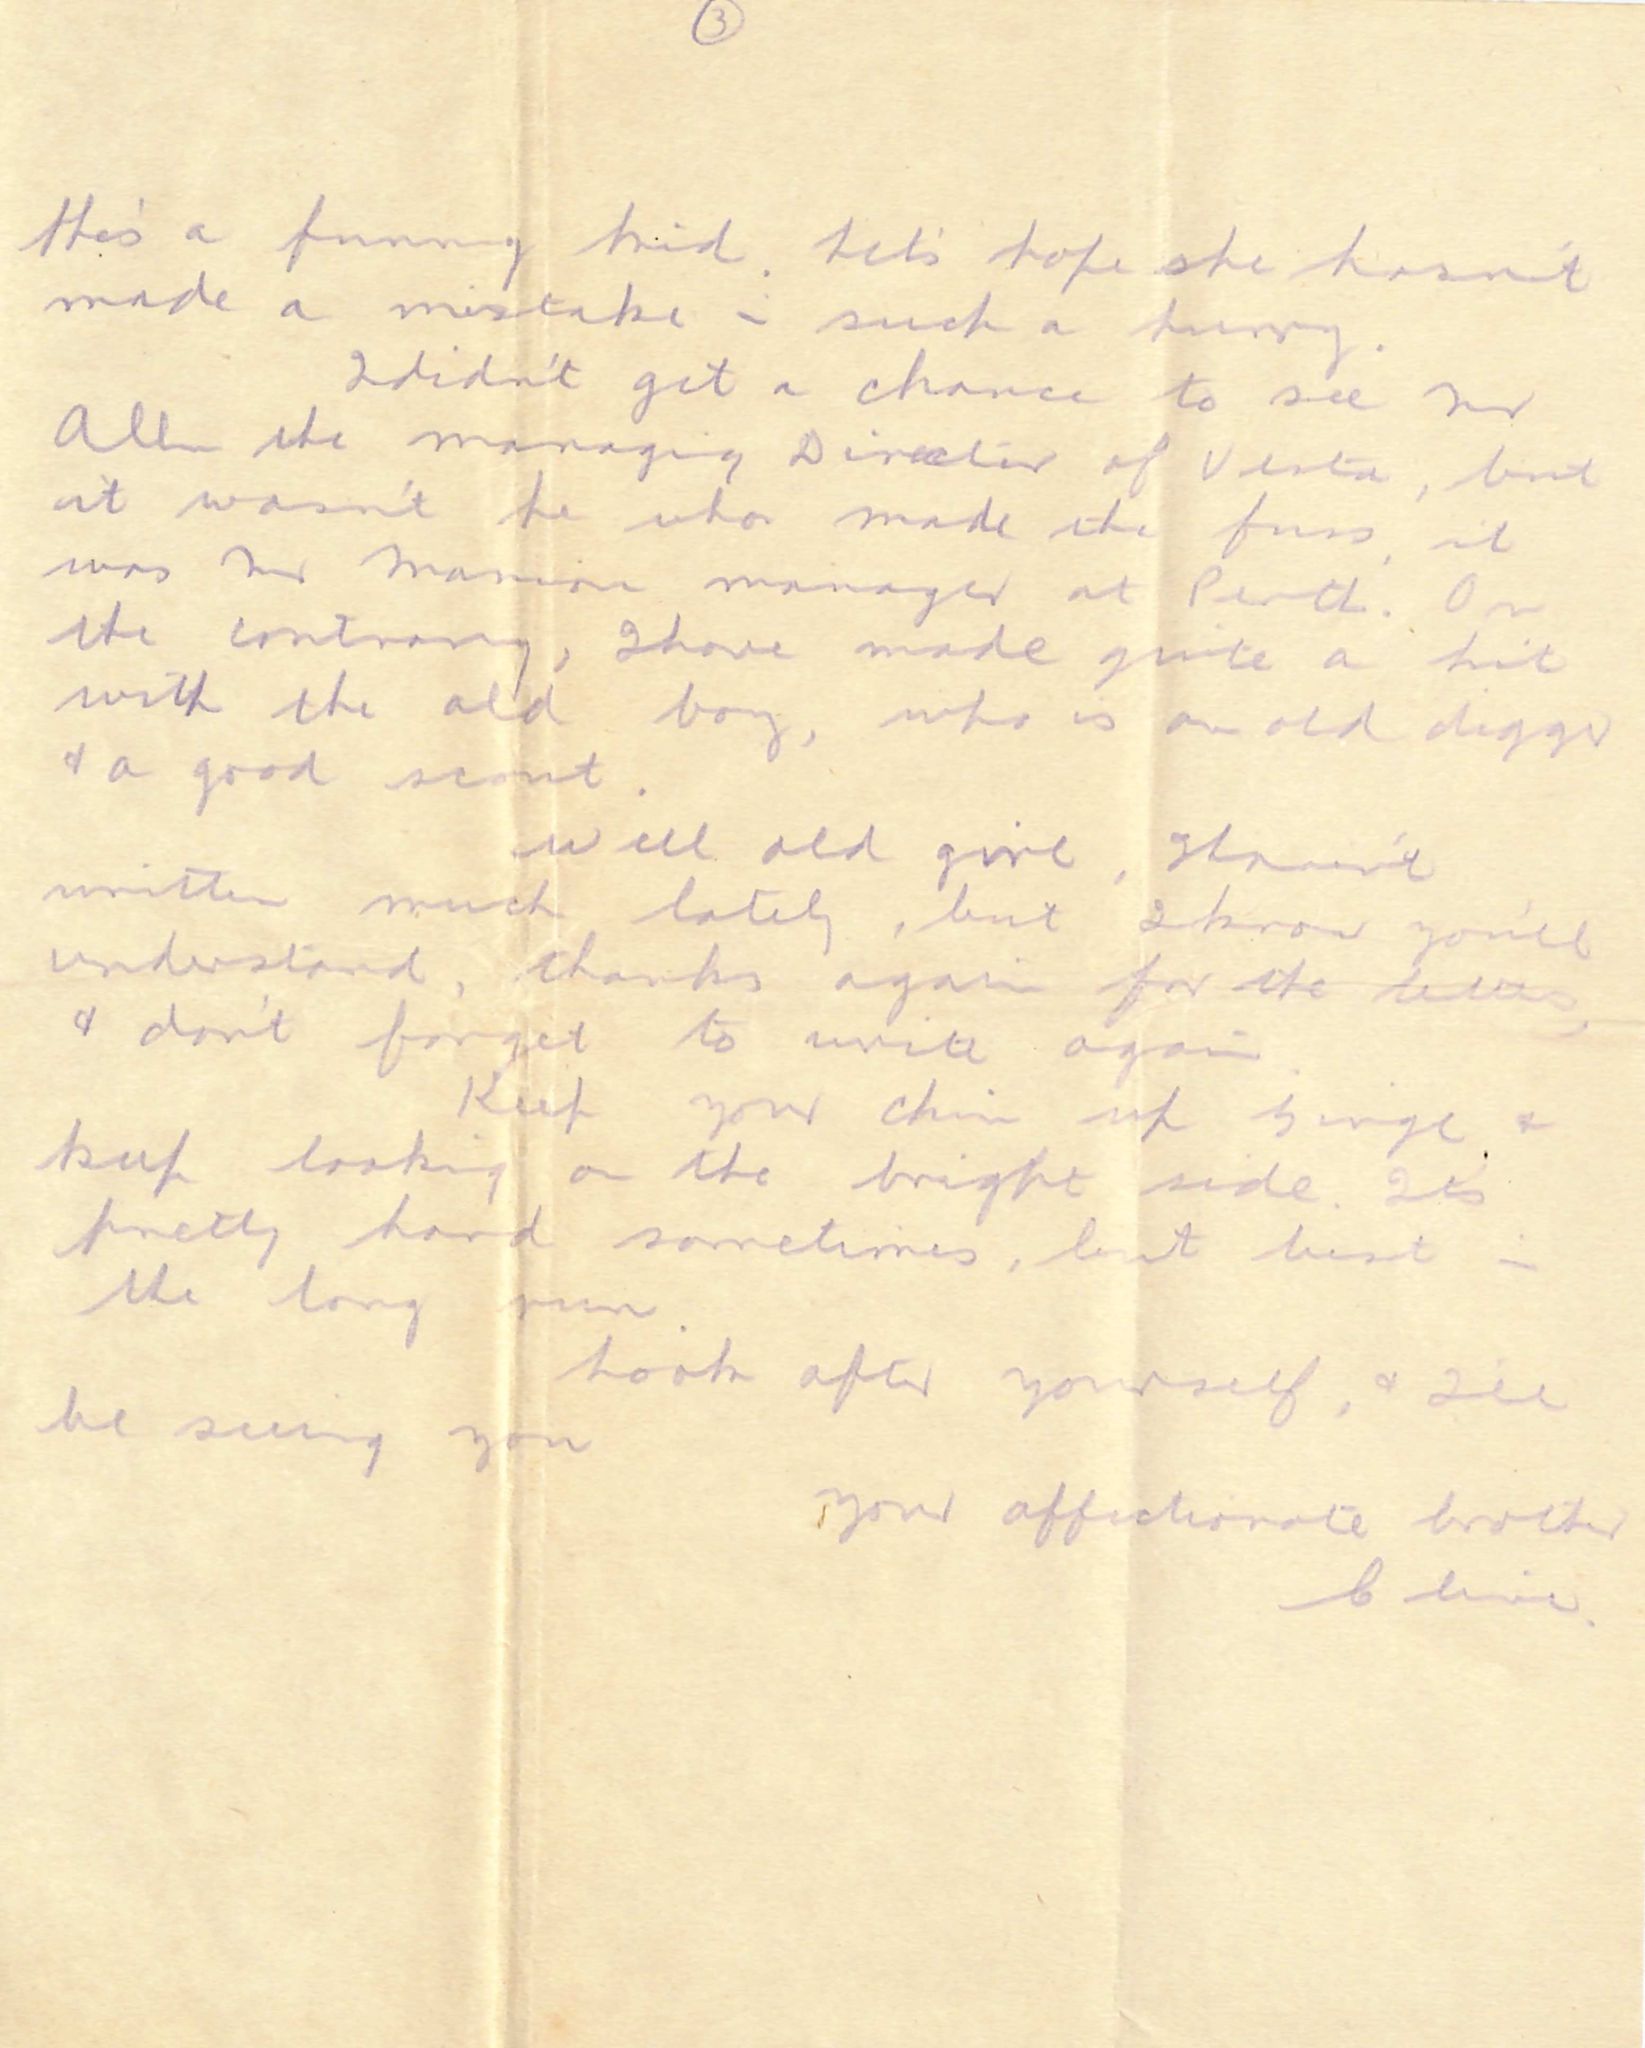 3
She's a funny kid. Let's hope she hasn't
made a mistake in such a hurry.
I didn't get a chance to see Mr
Allen the managing Director of Vesta, but
it wasn't he who made the fuss, it
was Mr manager at Perth. On
the contrary, I have made quite a hit
with the old boy, who is an old digger
& a good scout.
Well old girl, I haven't
written much lately, but I know you'll
understand, thanks again for the letters,
& don't forget to write again.
Keep your chin up Ginge &
keep looking on the bright side. It's
pretty hard sometimes, but best in
the long run.
Look after yourself, & I'll
be seeing you
your affectionate brother
Clive.